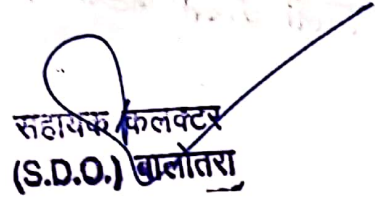 सहायक कलक्टर
(S.D.O.) बालोतरा